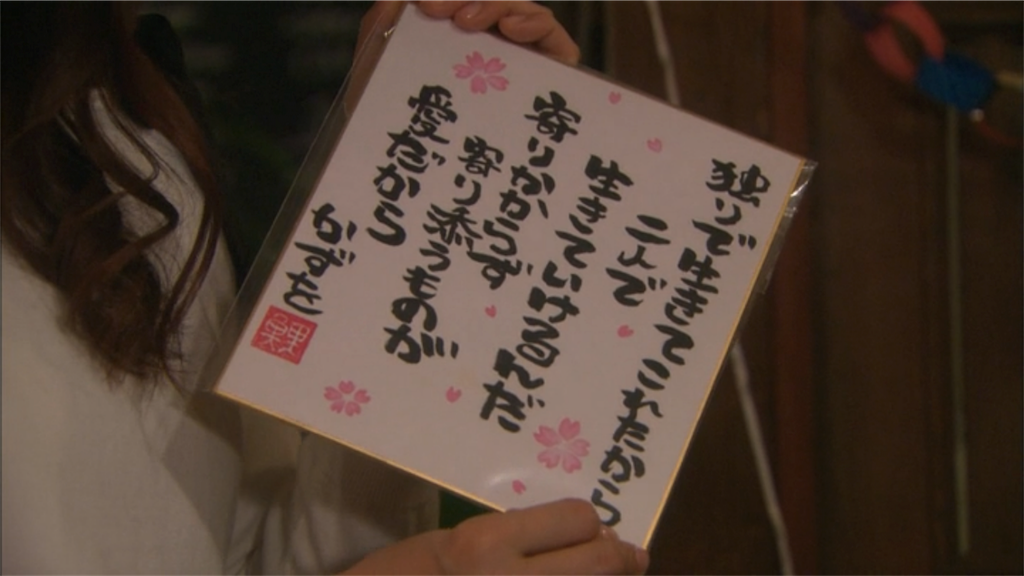 独りで生きてこれたから
二人で
生きていけるんだ
寄りかからず
寄り添うものが
愛だから
かずを